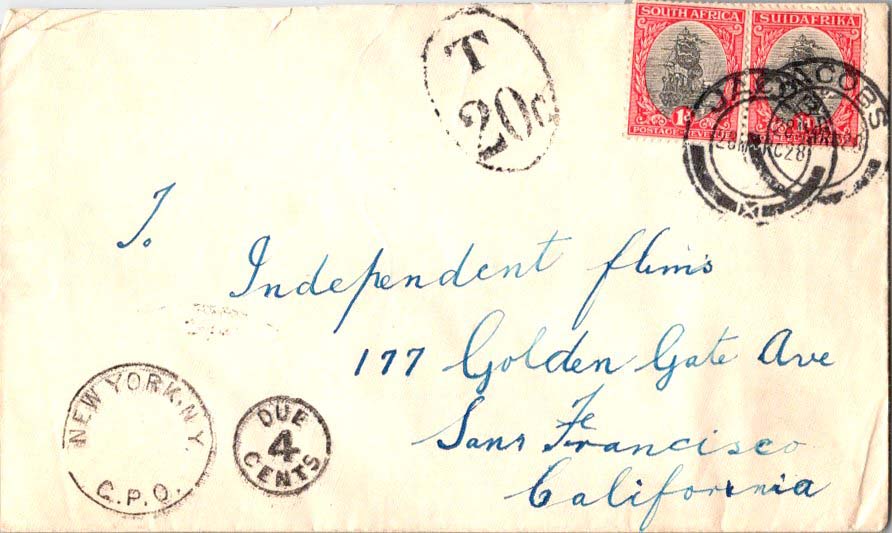 SOUTH AFRICA SUIDAFRIKA
1d
POSTAGE
JACOBS
28 MRC 28
T
20c
To
Independent flims
177 Golden Gate Ave
Sans Francisco
Fe
California
NEW YORK, N.Y.
G.P.O.
DUE
4
CENTS